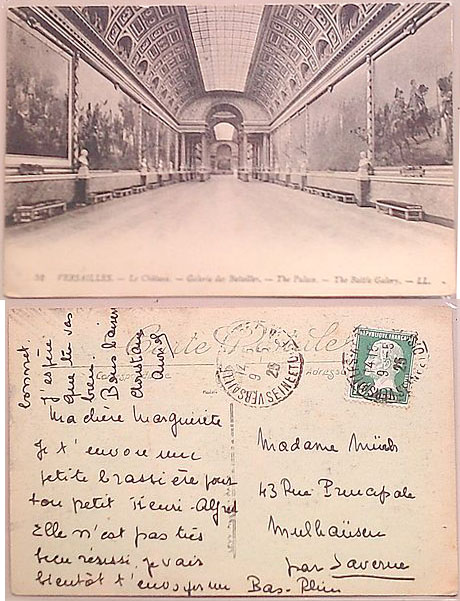 32 VERSAILLES. — Le Château. — Galerie des Batailles. — The Palace. — The Battle Galery. — LL.
Carte Postale
Adresse
VERSAILLES SEINE ET OISE
9 - 5
25
bonnet.
j'espère
que tu vas
bien.
Bons baisers
Ma chère Marguerite
Je t'envoie une
petite brassière pour
ton petit Henri-Alfred
Elle n'est pas très
bien réussi, je vais
bientôt t'envoyer un
Madame
43 Rue Principale
Mulhausen
par Saverne
Bas-Rhin